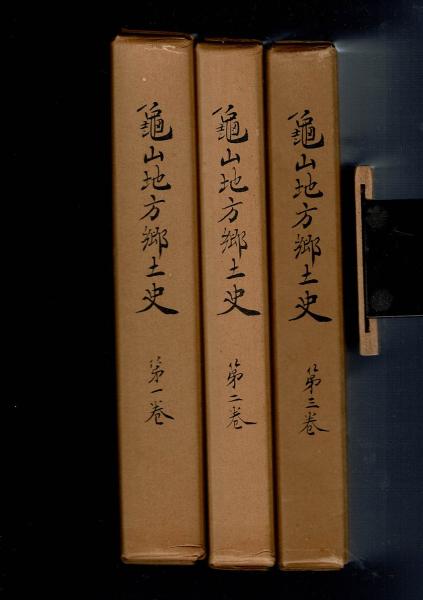 龜山地方郷土史
第一巻
龜山地方郷土史
第二巻
龜山地方郷土史
第三巻